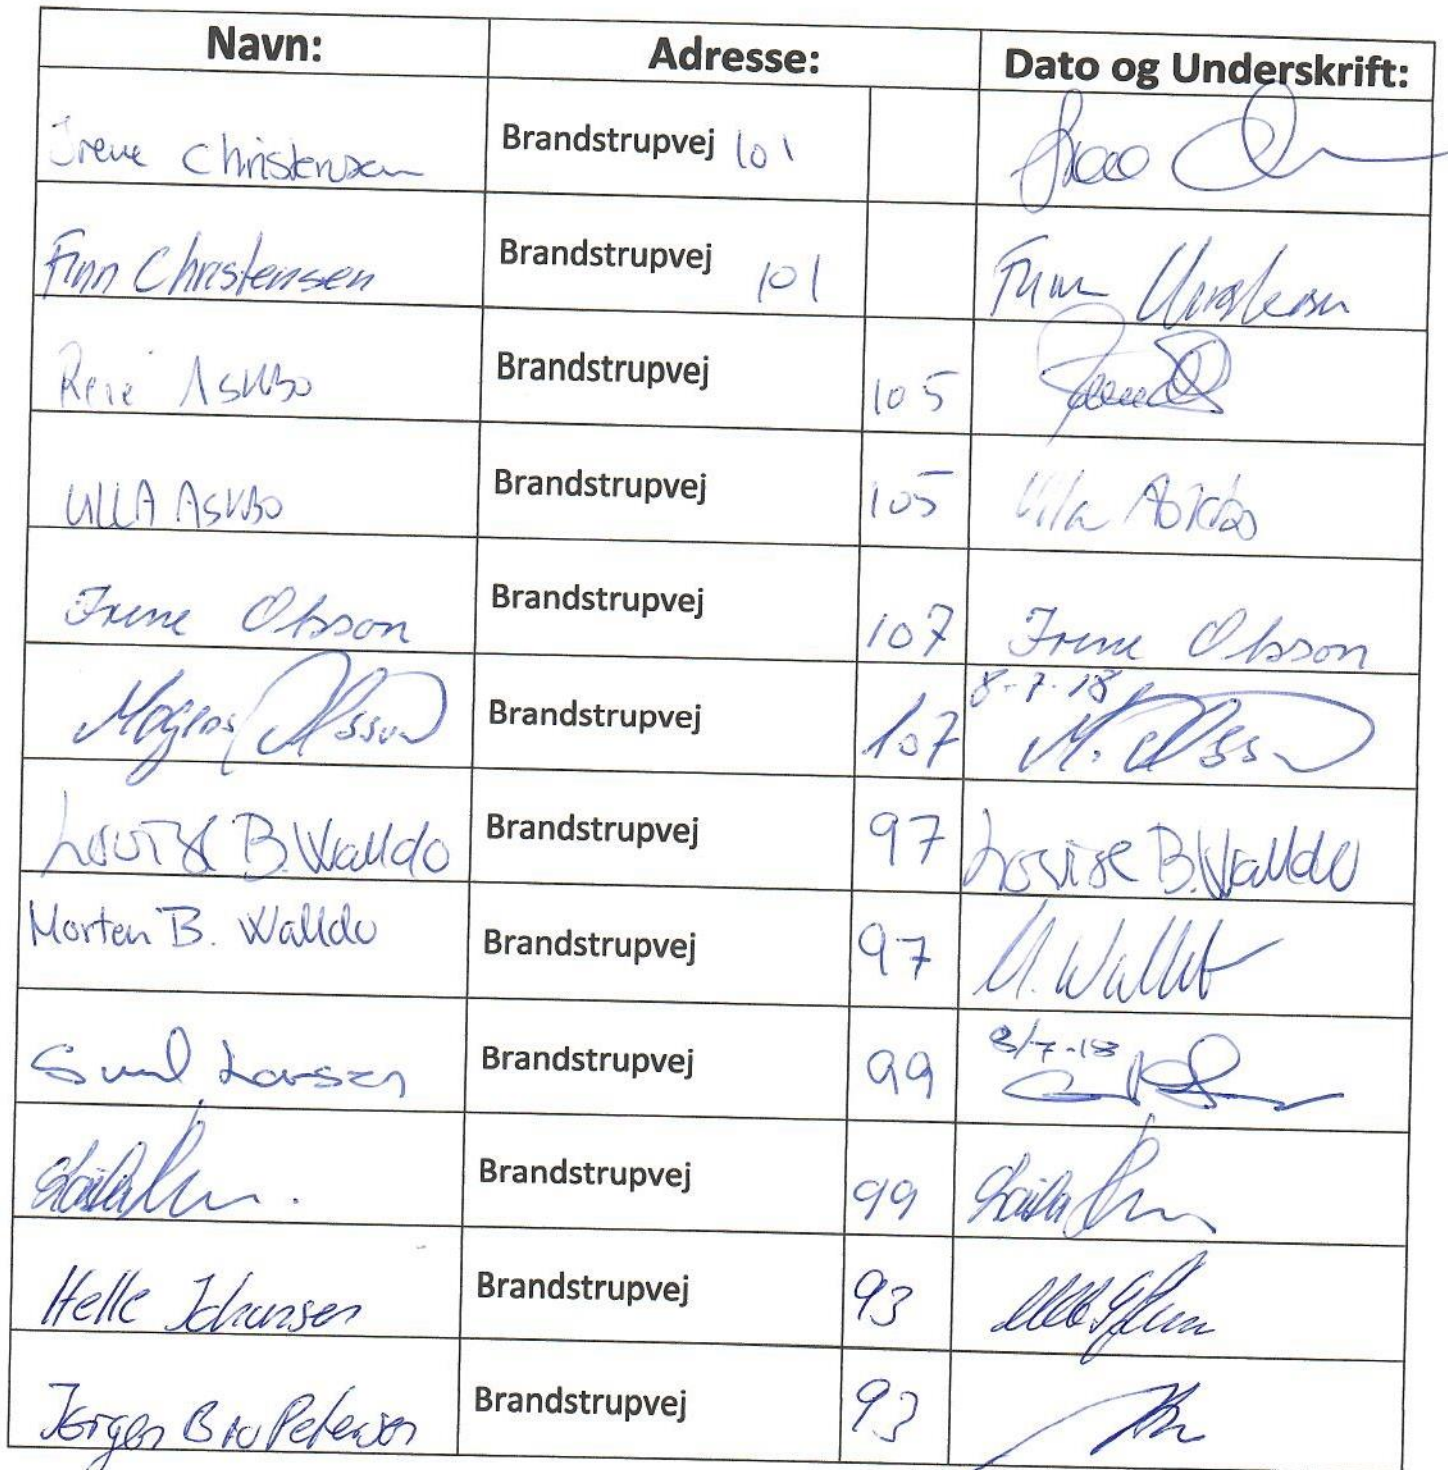 Navn: Adresse: Dato og Underskrift:
Irene Christensen Brandstrupvej 101
Finn Christensen Brandstrupvej 101 Finn Christensen
René Askbo Brandstrupvej 105
ULLA ASKBO Brandstrupvej 105 Ulla Askbo
Irene Olsson Brandstrupvej 107 Irene Olsson
8-7-18
Mogens Olsson Brandstrupvej 107 M. Olsson
Louise B. Walldo Brandstrupvej 97 Louise B. Walldo
Morten B. Walldo Brandstrupvej 97 M. Walldo
8/7-18
Larsen Brandstrupvej 99
Brandstrupvej 99
Helle Johansen Brandstrupvej 93
Jørgen Bro Petersen Brandstrupvej 93